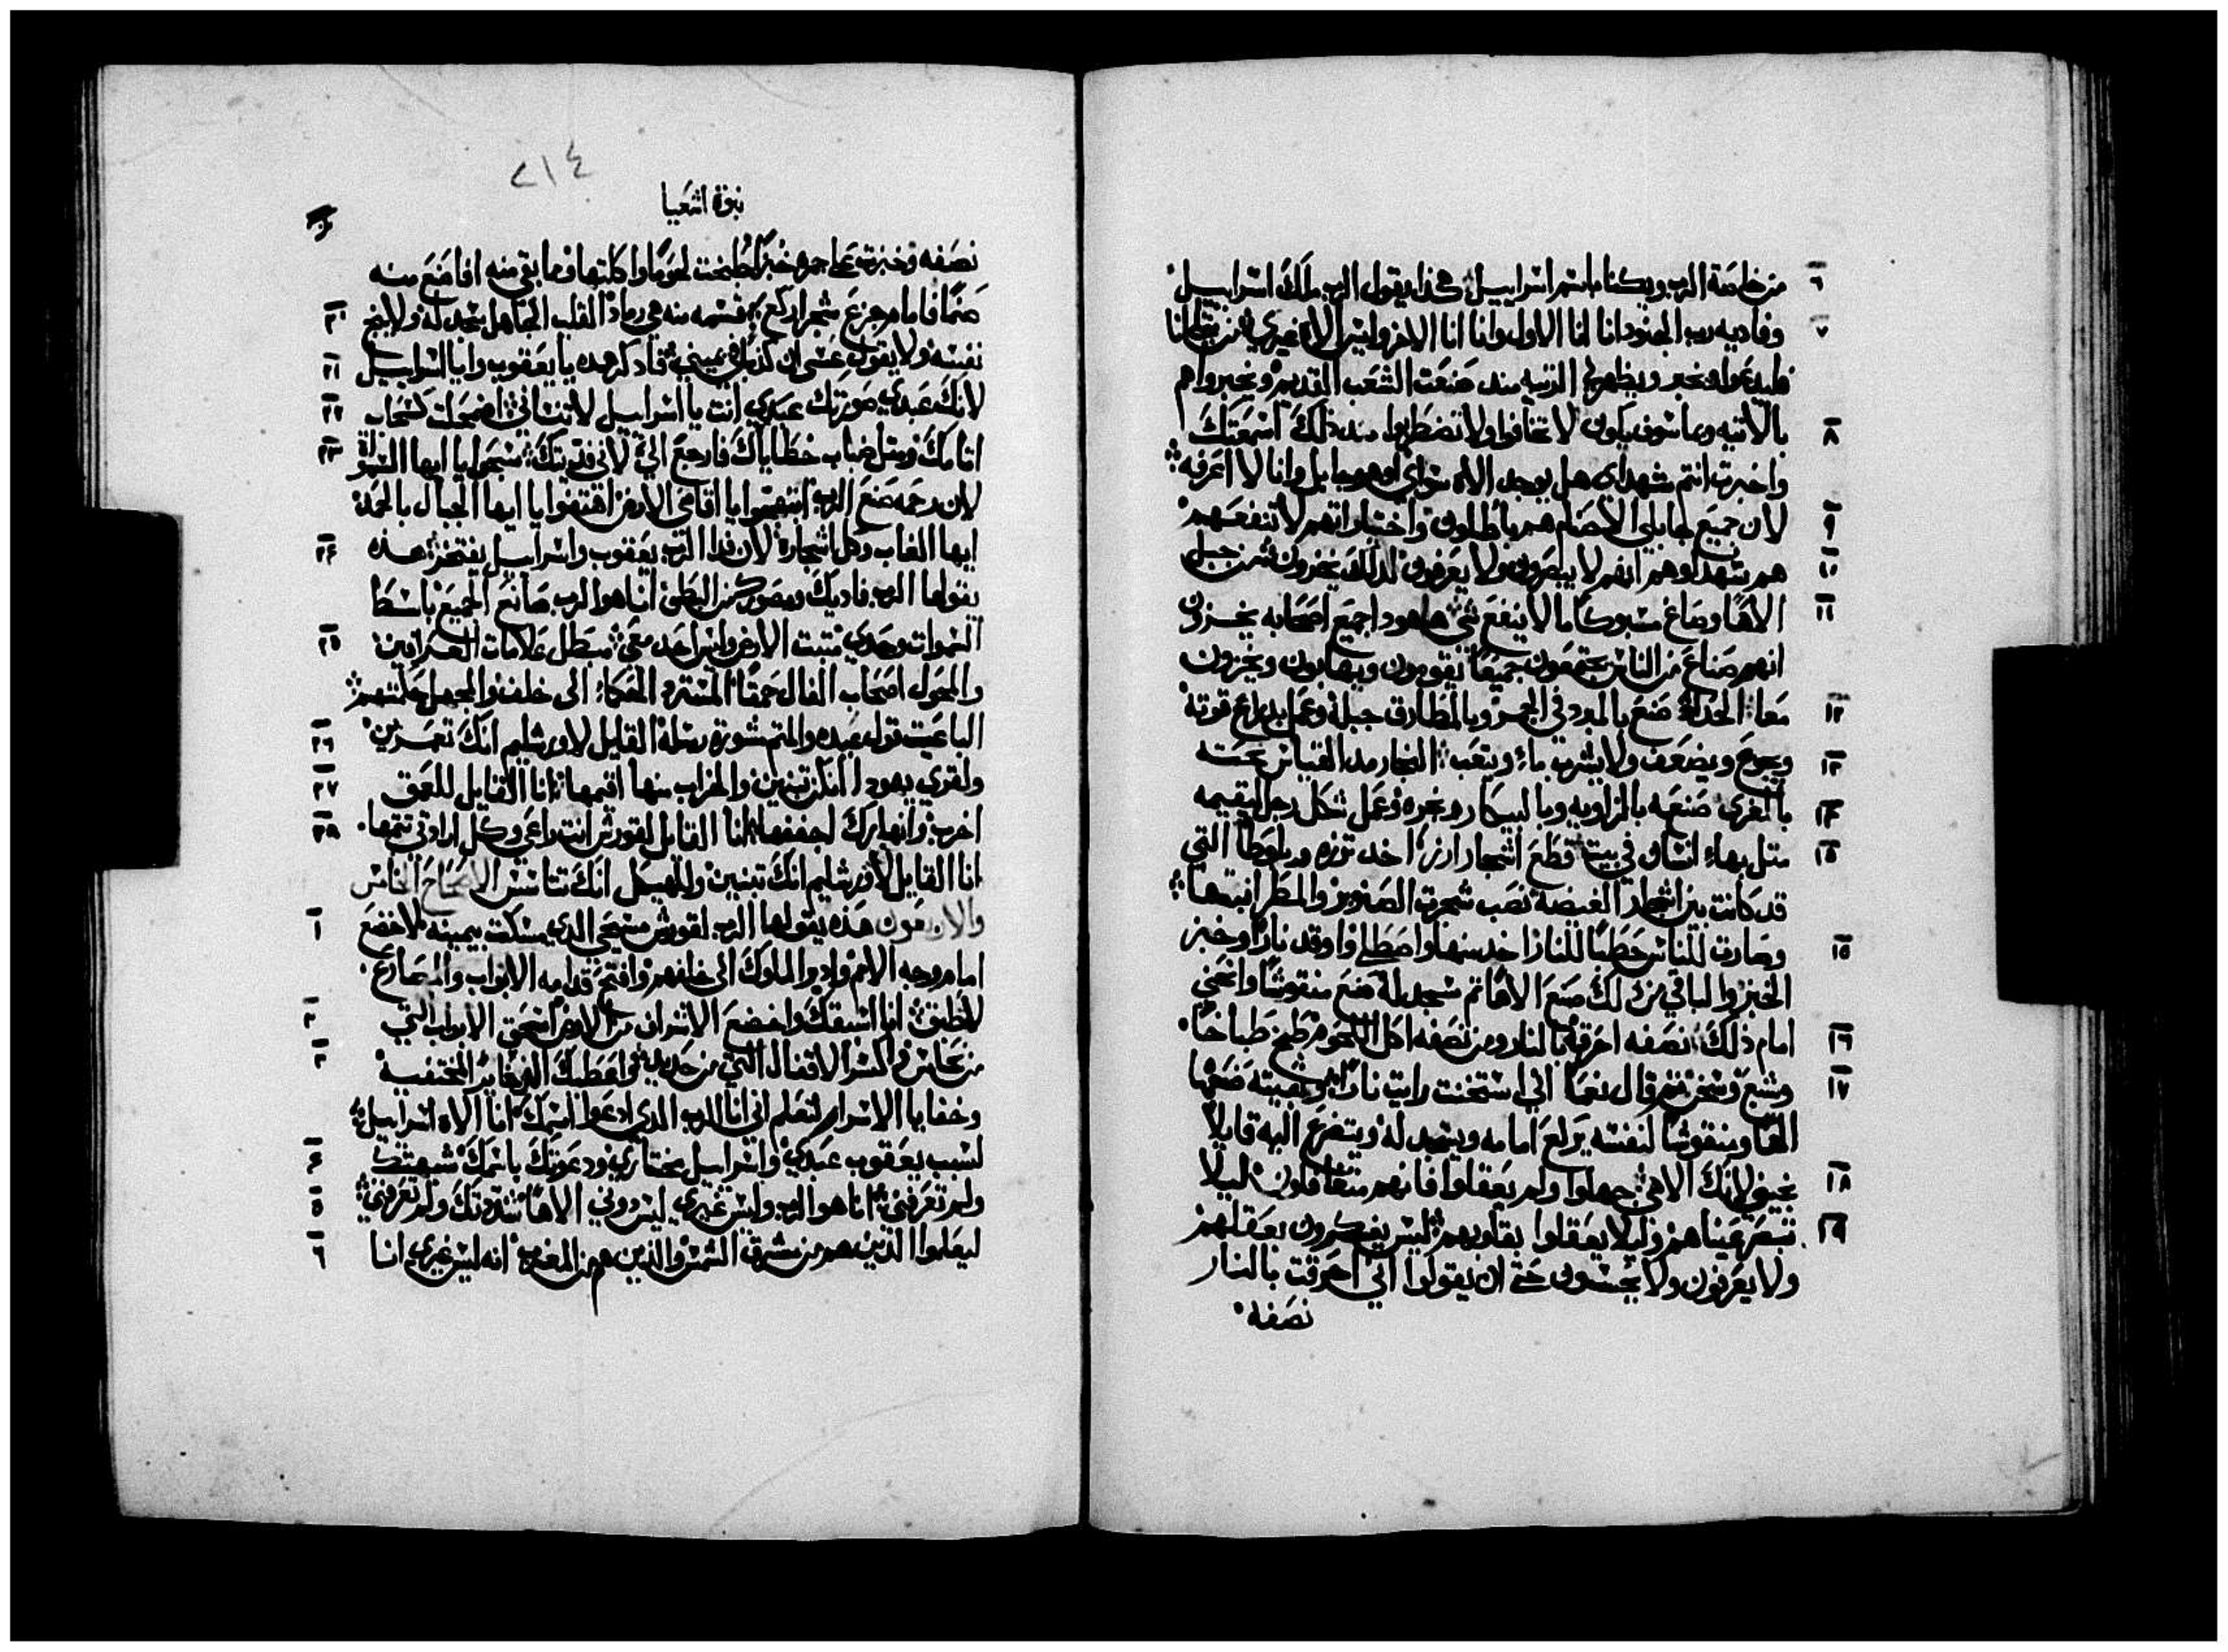 ٦ من خاصة الرب ويكنا باسم اسراييل هكذا يقول الرب ملك اسراييل
٧ وفاديه رب الجنود انا انا الاول وانا انا الاخر وليس الاه غيري من مثلنا
فليدعوا وخبر ويظهر الترتيب منذ صنعت الشعب القديم ويخبرواهم
٨ بالاتيه وما سوف يكون لا تخافوا ولا تضطربوا منذ ذلك اسمعتك
واخبرت انتم شهداي هل يوجد الاه سواي او هوجابل وانا لا اعرفه
٩ لان جميع جابلي الاصنام هم باطلون واختياراتهم لا تنفعهم
١٠ هم شهداوهم انهم لا يبصرون ولا يعرفون لذلك يخزون من جبل
١١ الاها وصاغ مسبوكا ما لا ينفع شي هاهودا جميع اصحابه يخزون
انهم صناع من الناس يجتمعون جميعا يقومون ويهابون ويخزون
١٢ معا الحداد صنع بالمبرد في الجمر وبالمطارق جبله وعمل بدراع قوته
١٣ ويجوع ويضعف ولا يشرب ماء ويتعب النجار مد القياس نحته
١٤ بالغرى صنعه بالزاويه وبالبيكار دوره وعمل شكل رجل ليقيمه
١٥ مثل بهاء انسان في بيت قطع اشجار ارز اخد توزه وبلوطا التي
قد كانت بين اشجار الغيضة نصب شجرت الصنوبر والمطر انبتها
١٥ وصارت للناس حطبا للنار اخد منها واصطلى واوقد نارا وخبز
الخبز والباقي من ذلك صنع الاها ثم سجد له صنع منقوشا وانحني
١٦ امام ذلك نصفه احرقه بالنار ومن نصفه اكل اللحوم طبخ طباخا
١٧ وشبع وسخن ثم قال نعما اني استخنت رايت نارا وبقيته صنعها
الها ومنقوشا لنفسه يركع امامه ويسجد له ويتضرع اليه قايلا
١٨ نجيني لانك الاهي جهلوا ولم يعقلوا فانهم متغافلون ليلا
١٩ تبصر عيناهم وليلا يعقلوا بقلوبهم ليس يفكرون بعقلهم
ولا يعرفون ولا يحسون حتى ان يقولوا اني احرقت بالنار
نصفه
٢١٤
نبوة اشعيا
نصفه وخبزت على جمره خبزا طبخت لحوما واكلتها وما بقي منه افاصنع منه
٢٠ صنما فامام جزع شجر اركع قسمه منه هي رماد القلب الجاهل سجد له ولا ينجي
٢١ نفسه ولا يقول عسى ان كذبا في يميني فادكر هده يا يعقوب وايا اسراييل
٢٢ لانك عبدي صورتك عبدي انت يا اسراييل لا تنساني اضمحلت كسحاب
٢٣ اتامك ومثل ضباب خطاياك فارجع الي لاني فديتك سبحوا يا ايها السموات
لان رحمه صنع الرب ابتهجوا يا اقاصي الارض اهتفوا يا ايها الجبال بالحمد
٢٤ ايها الغاب وكل اشجاره لان فدا الرب يعقوب واسراييل يفتخر هده
يقولها الرب فاديك ومصورك من البطن انا هو الرب صانع الجميع باسط
٢٥ السموات وحدي مثبت الارض وليس احد معي مبطل علامات العرافين
والمحول اصحاب الفال حمقا المسترد الحكماء الى خلف والمجهل حكمتهم
٢٦ الباعث قوله عبده والمتم مشورة رسله القايل لاورشليم انك تعمرين
٢٧ ولقري يهودا انكن تبنين والخراب منها اقيمها انا القايل للعمق
٢٨ اخرب وانهارك اجففها انا القايل لقورش انت راعي وكل ارادتي تتمها
انا القايل لاورشليم انك تبنين وللهيكل انك تتاسس الاصحاح الخامس
١ والاربعون هذه يقولها الرب لقورش مسيحي الذي مسكت بيمينه لاخضع
امام وجه الامم وادبر الملوك الى خلفهم وافتح قدامه الابواب والمصارع
٢ لا تطبق انا اسبقك واخضع الاشراف من الارض اسحق الابواب التي
٣ من نحاس واكسر الاقفال التي من حديد واعطيك الدخاير المختفيه
وخفايا الاسرار لتعلم اني انا الرب الذي ادعوا اسمك انا الاه اسراييل
٤ لسبب يعقوب عبدي واسراييل مختاري ودعوتك باسمك شبهتك
٥ ولم تعرفني انا هو الرب وليس غيري ليس دوني الاها شددتك ولم تعرفني
٦ ليعلموا الذين هم من مشرق الشمس والذين هم من المغرب انه ليس غيري انا